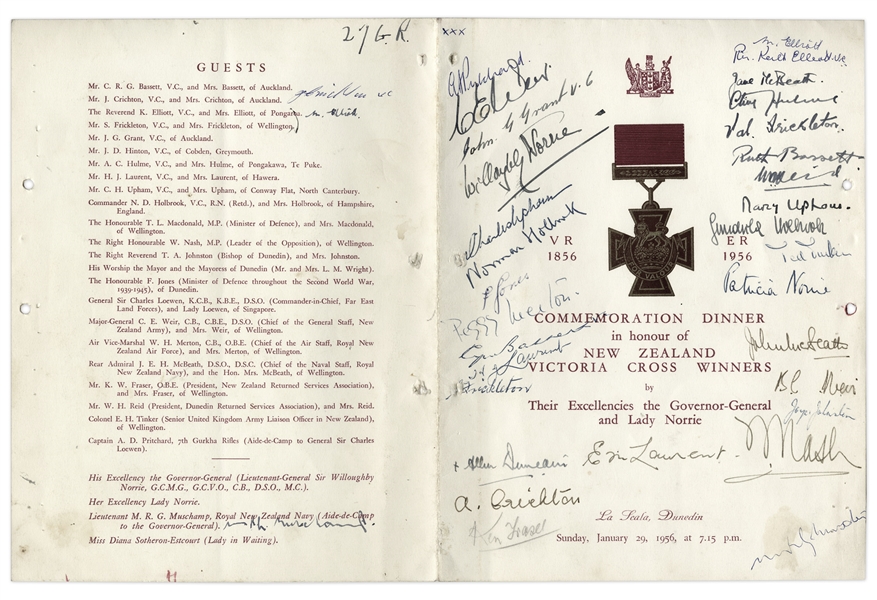 27 G.R.
GUESTS
Mr. C. R. G. Bassett, V.C., and Mrs. Bassett, of Auckland.
Mr. J. Crichton, V.C., and Mrs. Crichton, of Auckland.
The Reverend K. Elliott, V.C., and Mrs. Elliott, of Pongaroa. M. Elliott.
Mr. S. Frickleton, V.C., and Mrs. Frickleton, of Wellington.
Mr. J. G. Grant, V.C., of Auckland.
Mr. J. D. Hinton, V.C., of Cobden, Greymouth.
Mr. A. C. Hulme, V.C., and Mrs. Hulme, of Pongakawa, Te Puke.
Mr. H. J. Laurent, V.C., and Mrs. Laurent, of Hawera.
Mr. C. H. Upham, V.C., and Mrs. Upham, of Conway Flat, North Canterbury.
Commander N. D. Holbrook, V.C., R.N. (Retd.), and Mrs. Holbrook, of Hampshire,
England.
The Honourable T. L. Macdonald, M.P. (Minister of Defence), and Mrs. Macdonald,
of Wellington.
The Right Honourable W. Nash, M.P. (Leader of the Opposition), of Wellington.
The Right Reverend T. A. Johnston (Bishop of Dunedin), and Mrs. Johnston.
His Worship the Mayor and the Mayoress of Dunedin (Mr. and Mrs. L. M. Wright).
The Honourable F. Jones (Minister of Defence throughout the Second World War,
1939-1945), of Dunedin.
General Sir Charles Loewen, K.C.B., K.B.E., D.S.O. (Commander-in-Chief, Far East
Land Forces), and Lady Loewen, of Singapore.
Major-General C. E. Weir, C.B., C.B.E., D.S.O. (Chief of the General Staff, New
Zealand Army), and Mrs. Weir, of Wellington.
Air Vice-Marshal W. H. Merton, C.B., O.B.E. (Chief of the Air Staff, Royal New
Zealand Air Force), and Mrs. Merton, of Wellington.
Rear Admiral J. E. H. McBeath, D.S.O., D.S.C. (Chief of the Naval Staff, Royal
New Zealand Navy), and the Hon. Mrs. McBeath, of Wellington.
Mr. K. W. Fraser, O.B.E. (President, New Zealand Returned Services Association),
and Mrs. Fraser, of Wellington.
Mr. W. H. Reid (President, Dunedin Returned Services Association), and Mrs. Reid.
Colonel E. H. Tinker (Senior United Kingdom Army Liaison Officer in New Zealand),
of Wellington.
Captain A. D. Pritchard, 7th Gurkha Rifles (Aide-de-Camp to General Sir Charles
Loewen).
His Excellency the Governor-General (Lieutenant-General Sir Willoughby
Norrie, G.C.M.G., G.C.V.O., C.B., D.S.O., M.C.).
Her Excellency Lady Norrie.
Lieutenant M. R. G. Muschamp, Royal New Zealand Navy (Aide-de-Camp
to the Governor-General).
Miss Diana Sotheron-Estcourt (Lady in Waiting).
xxx
M. Elliott
Rev. Keith Elliott V.C.
Jane McBeath
John G Grant V.C
Val. Frickleton
Willoughby Norrie
Ruth Bassett
Charles Upham
Mary Upham
Norman Holbrook
Gundula Holbrook
Ted Tinker
V R
1856
E R
1956
F Jones
Patricia Norrie
Peggy Merton
COMMEMORATION DINNER
in honour of
NEW ZEALAND
VICTORIA CROSS WINNERS
by
Their Excellencies the Governor-General
and Lady Norrie
Cyril Bassett
H J Laurent
Frickleton
John McBeath
Joyce Johnston
W Nash
+ Allen Dunedin
Eve Laurent
A. Crichton
Ken Fraser
La Scala, Dunedin
Sunday, January 29, 1956, at 7.15 p.m.